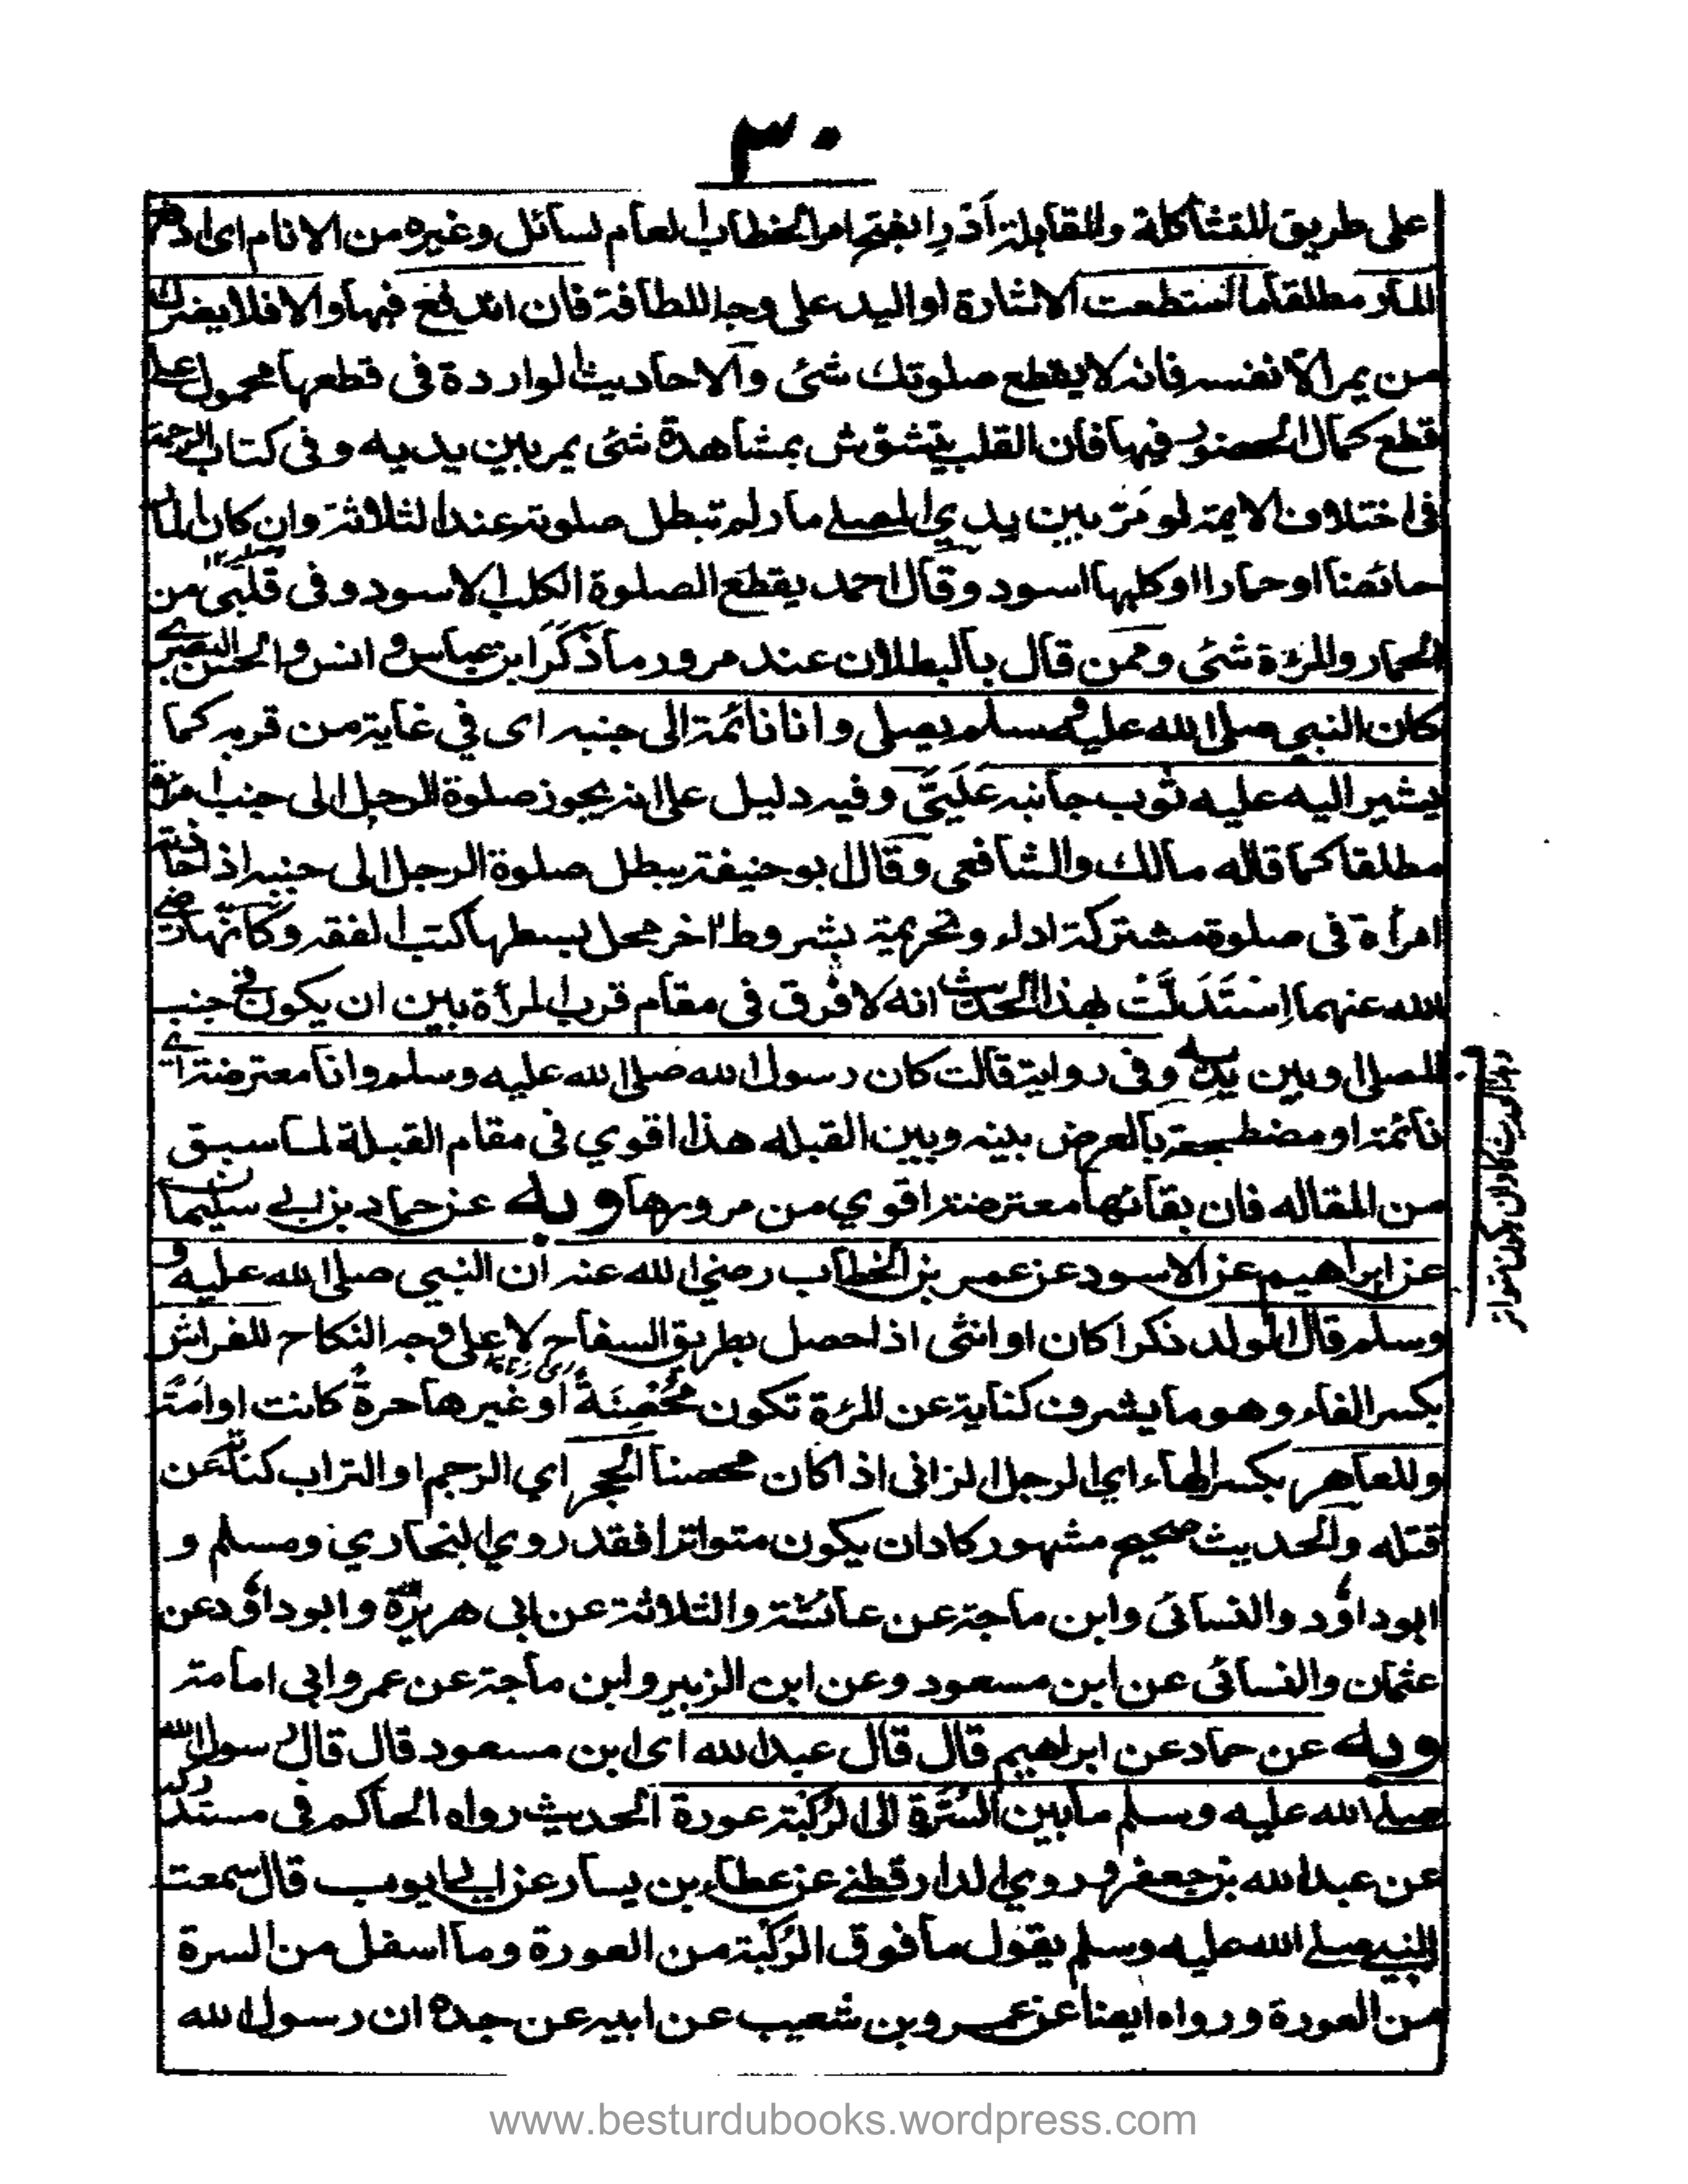 ٣٠
على طريق المشاكلة والمقابلة أدرا بفتح امر الخطاب العام لسائل وغيره من الانام اى ادفع
المار مطلقا ما استطعت الاشارة او اليد على وجه اللطافة فان اندفع فبها والا فلا يضرك
من يمر الا نفسه فانه لا يقطع صلوتك شئ والاحاديث الواردة فى قطعها محمول على
قطع كمال الحضور فيها فان القلب يتشوش بمشاهدة شئ يمر بين يديه وفى كتاب الرحمة
فى اختلاف الايمة لو مَرّ بين يدي المصلے مار لم تبطل صلوته عند الثلاثة وان كان المار
حائضا او حمارا او كلبا اسود وقال احمد يقطع الصلوة الكلب الاسود وفى قلبى من
الحمار والمرءة شئ وممن قال بالبطلان عند مرور ما ذكر ابن عباس و انس والحسن البصرے
كان النبي صلى الله عليه وسلم يصلى وانا نائمة الى جنبه اى في غاية من قربه كما
يشير اليه عليه ثوب جانبه عَلَيَّ وفيه دليل على انه يجوز صلوة الرجل الى جنب امرءة
مطلقا كما قاله مالك والشافعى وقال ابو حنيفة يبطل صلوة الرجل الى جنبه اذا حاذته
امرأة فى صلوة مشتركة اداء وتحريمة بشروط اخر محل بسطها كتب الفقه وكانها رضى
الله عنهما اِستَدَلَّتْ بهذا الحديث انه لا فرق فى مقام قرب المرأة بين ان يكون في جنب
المصلى او بين يديه وفى رواية قالت كان رسول الله صلى الله عليه وسلم وانا معترضة اي
نائمة او مضطجعة بالعرض بينه وبين القبله هذا اقوي فى مقام القبلة لما سبق
من المقاله فان بقائها معترضة اقوي من مرورها وبه عن حماد بن ابے سليمان
عن ابراهيم عن الاسود عن عمر بن الخطاب رضي الله عنه ان النبي صلى الله عليه و
وسلم قال الولد ذكرا كان او انثى اذا حصل بطريق السفاح لا على وجه النكاح للفراش
بكسر الفاء وهو ما يفترش كناية عن المرءة تكون مُحْصِنَةً او غيرها حرةً كانت او امَةً
وللعاهر بكسر الهاء اي الرجل الزانى اذا كان محصنا الحجر اي الرجم او التراب كناية عن
قتله والحديث صحيح مشهور كاد ان يكون متواترا فقد روي البخاري ومسلم و
ابو داؤد والنسائى وابن ماجة عن عائشة والثلاثة عن ابى هريرة وابو داؤد عن
عثمان والنسائى عن ابن مسعود وعن ابن الزبير وابن ماجة عن عمر وابى امامة
وبه عن حماد عن ابراهيم قال قال عبد الله اى ابن مسعود قال قال رسول الله
صلے الله عليه وسلم ما بين السُّرَّة الى الرُكْبَة عورة الحديث رواه الحاكم فى مستدركه
عن عبد الله بن جعفر وروي الدارقطنے عن عطاء بن يسار عن ابي ايوب قال سمعت
النبي صلے الله عليه وسلم يقول ما فوق الرُكْبَة من العورة وما اسفل من السرة
من العورة ورواه ايضا عن عمرو بن شعيب عن ابيه عن جده ان رسول الله
هذا الحديث كاد ان يكون متواتر
www.besturdubooks.wordpress.com